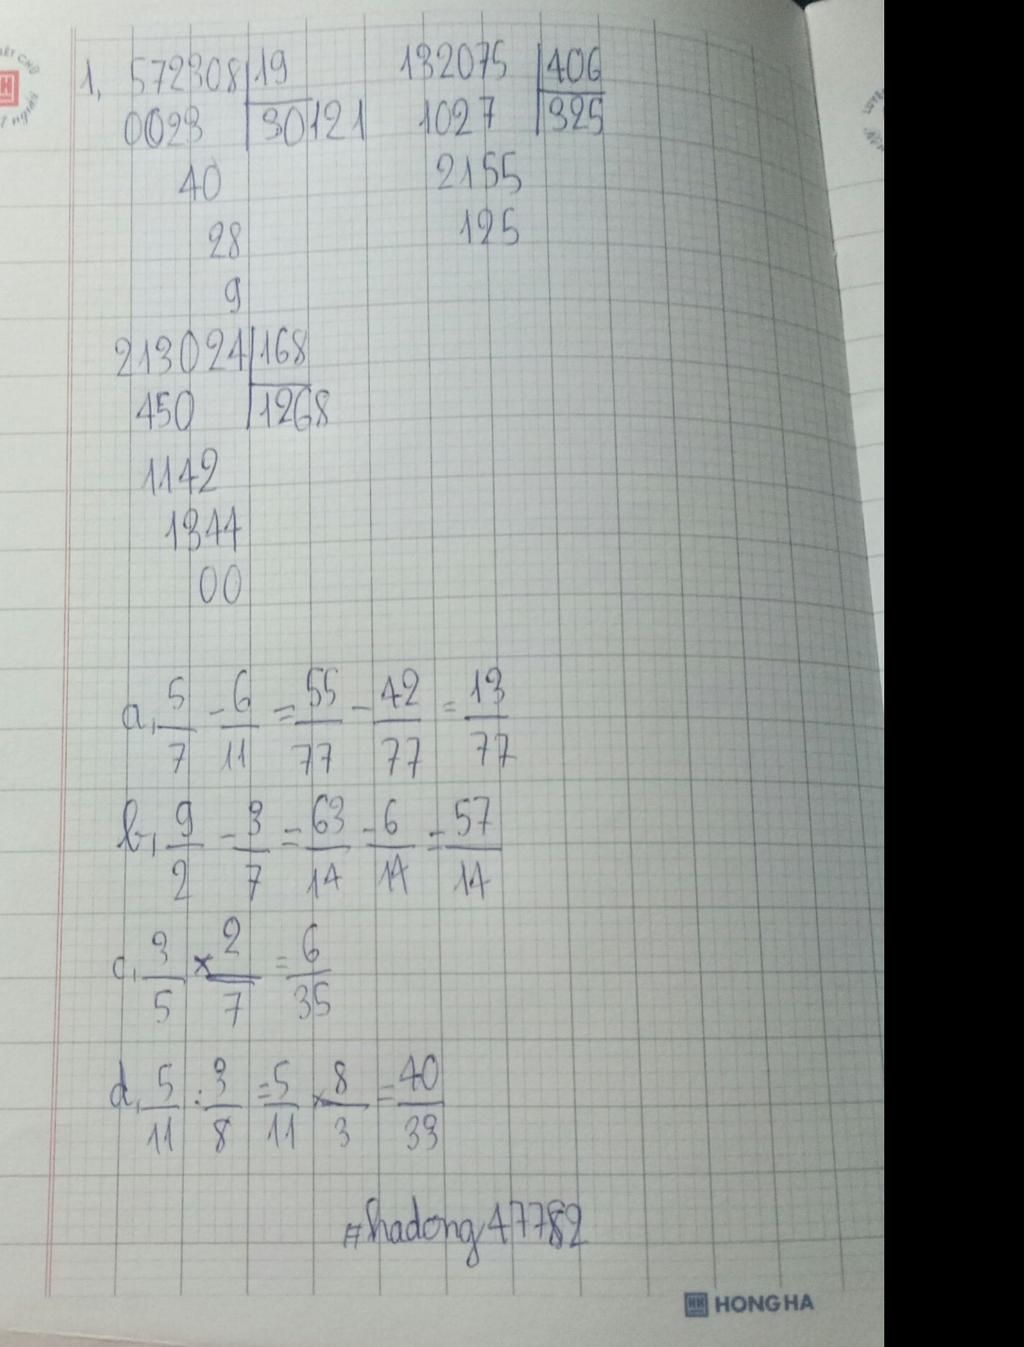 1, 572308 19 132075 406
0023 30121 1027 325
40 2155
28 125
9
213024 168
450 1268
1142
1344
00
a, 5/7 - 6/11 = 55/77 - 42/77 = 13/77
b, 9/2 - 3/7 = 63/14 - 6/14 = 57/14
c, 3/5 × 2/7 = 6/35
d, 5/11 : 3/8 = 5/11 × 8/3 = 40/33
#hadong47782
HONG HA